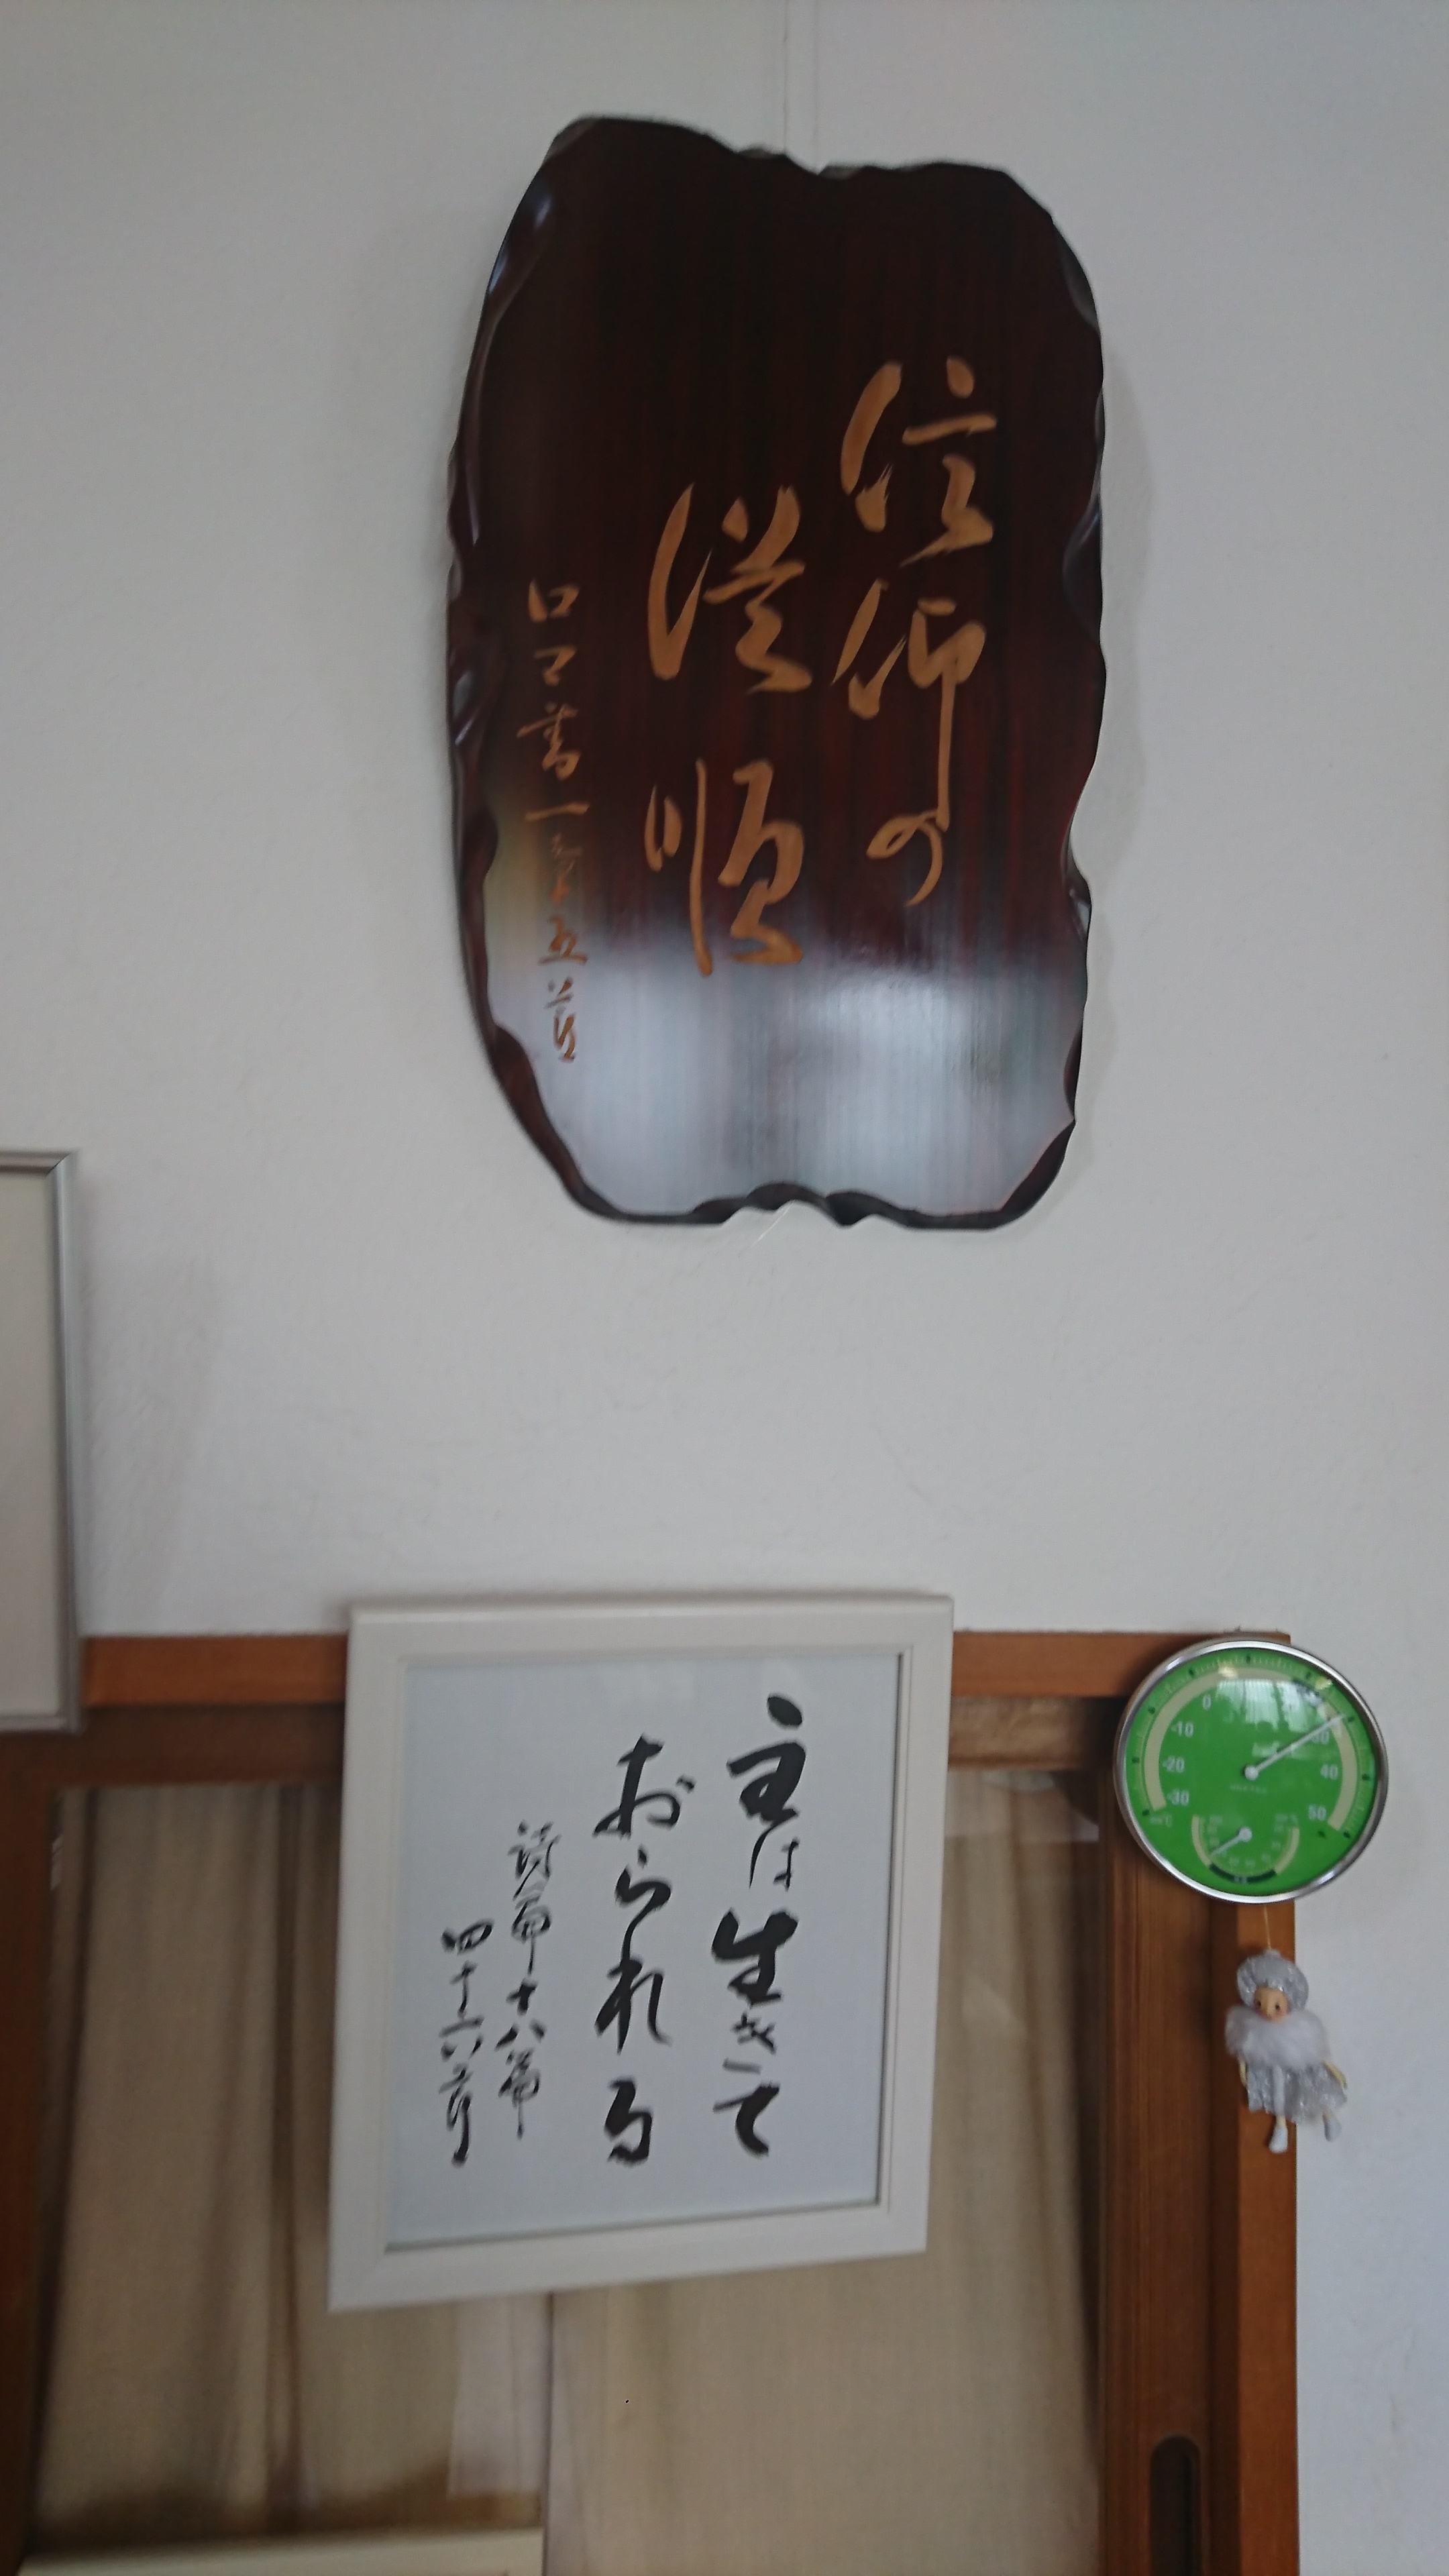 信仰の
従順
ロマ書一章五節
主は生きて
おられる
詩篇十八篇
四十六節
0
-10
-20
-30
30
40
50